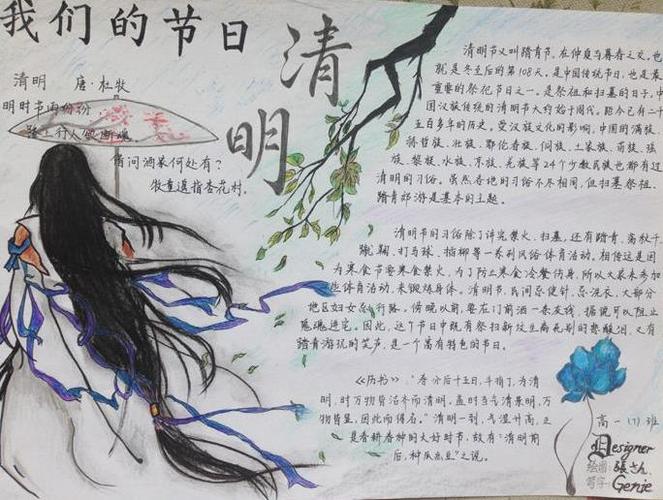 我们的节日
清明
清明 唐·杜牧
明时节雨纷纷,
路上行人欲断魂
借问酒家何处有?
牧童遥指杏花村.
清明节又叫踏青节,在仲春与暮春之交,也
就是冬至后的第108天,是中国传统节日,也是最
重要的祭祀节日之一,是祭祖和扫墓的日子,中
国汉族传统的清明节大约始于周代,距今已有二千
五百多年的历史,受汉族文化的影响,中国的满族、
赫哲族、壮族、鄂伦春族、侗族、土家族、苗族、瑶
族、黎族、水族、京族、羌族等24个少数民族也都有过
清明的习俗。虽然各地的习俗不尽相同,但扫墓祭祖、
踏青郊游是基本的主题。
清明节的习俗除了讲究禁火、扫墓,还有踏青、荡秋千
蹴鞠、打马球、插柳等一系列风俗体育活动。相传这是因
为寒食节要寒食禁火,为了防止寒食冷餐伤身,所以大家来参加
些体育活动,来锻炼身体。清明节,民间忌使针,忌洗衣,大部分
地区妇女忌行路。傍晚以前,要在门前洒一条灰线,据说可以阻止
鬼魂进宅。因此,这个节日中既有祭扫新坟生离死别的悲酸泪,又有
踏青游玩的笑声,是一个富有特色的节日。
《历书》:"春分后十五日,斗指丁,为清
明,时万物皆洁齐而清明,盖时当气清景明,万
物皆显,因此而得名。"清明一到,气温升高,正
是春耕春种的大好时节,故有"清明前
后,种瓜点豆"之说。
高一(7)班
Designer
绘图:
写字: Genie